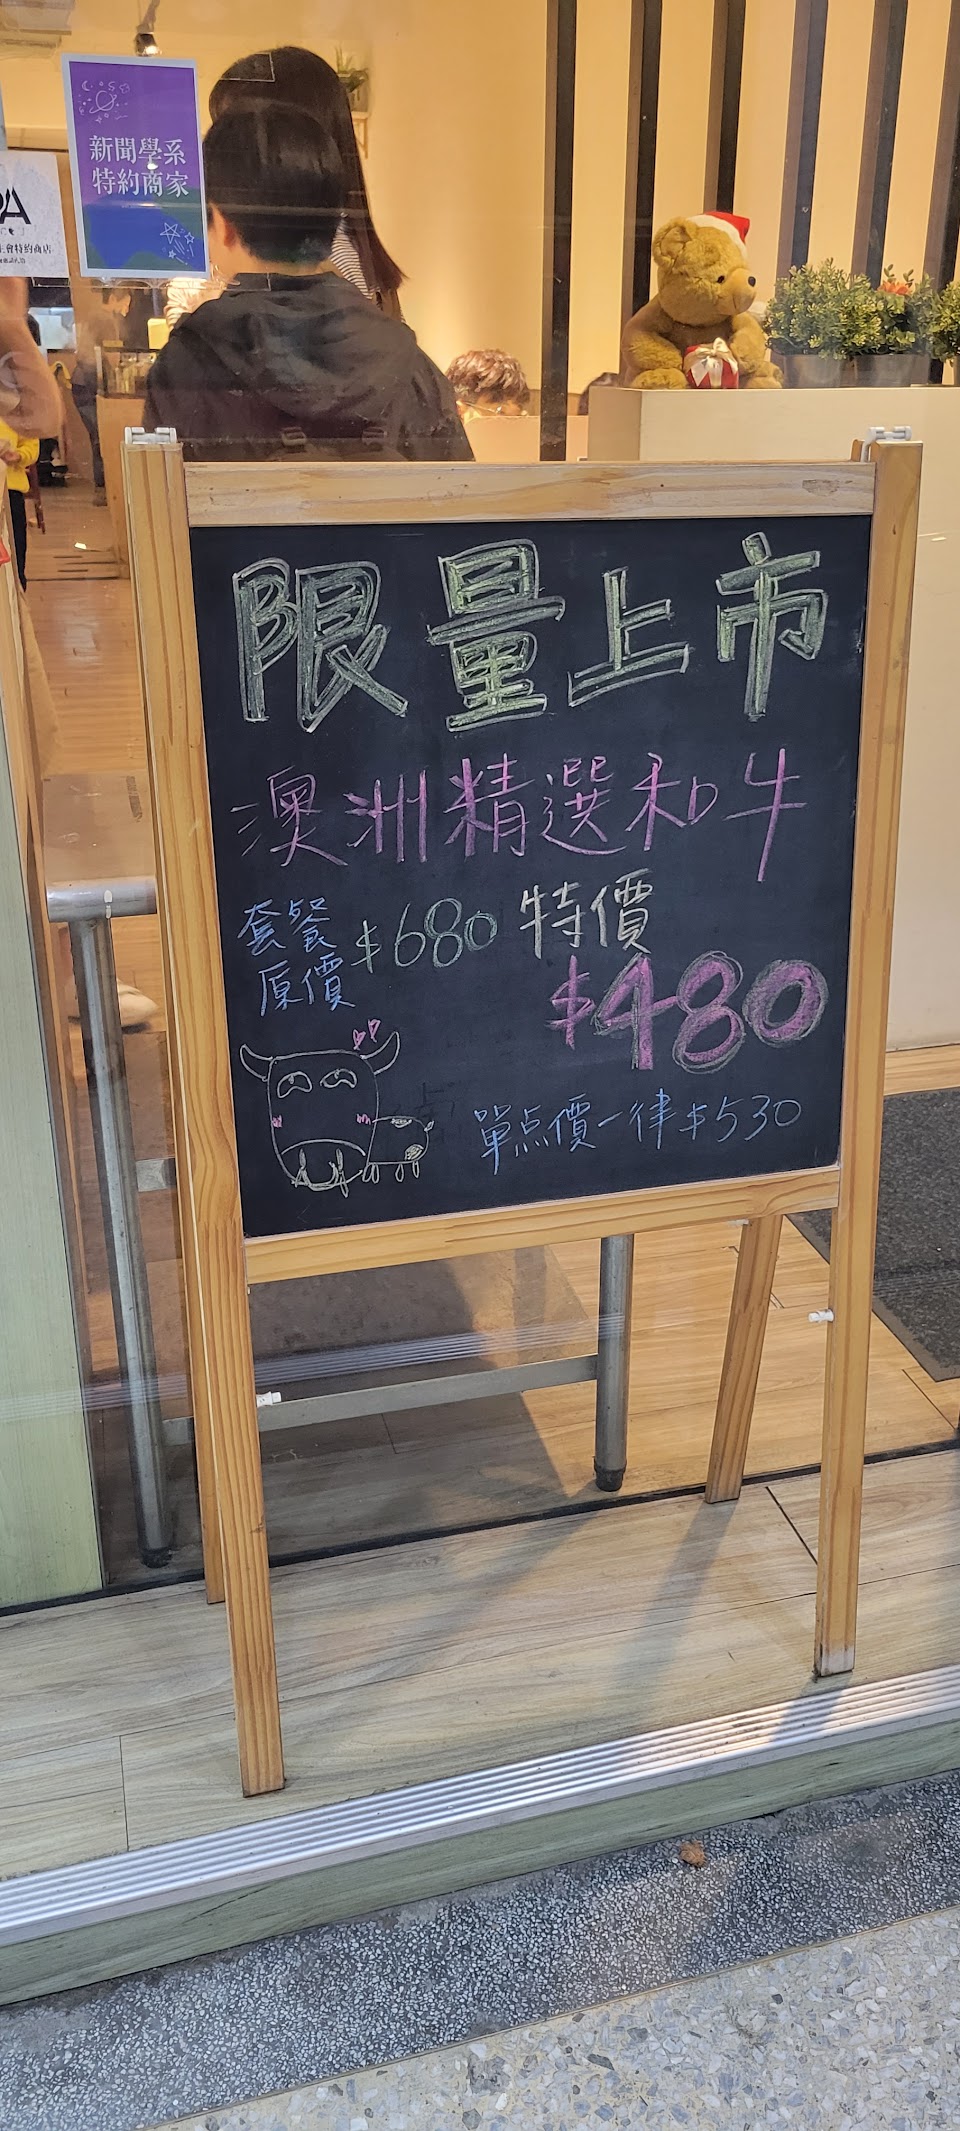 新聞學系
特約商家
PA
會特約商店
限量上市
澳洲精選和牛
套餐
原價 $680 特價
$480
單点價一律$530